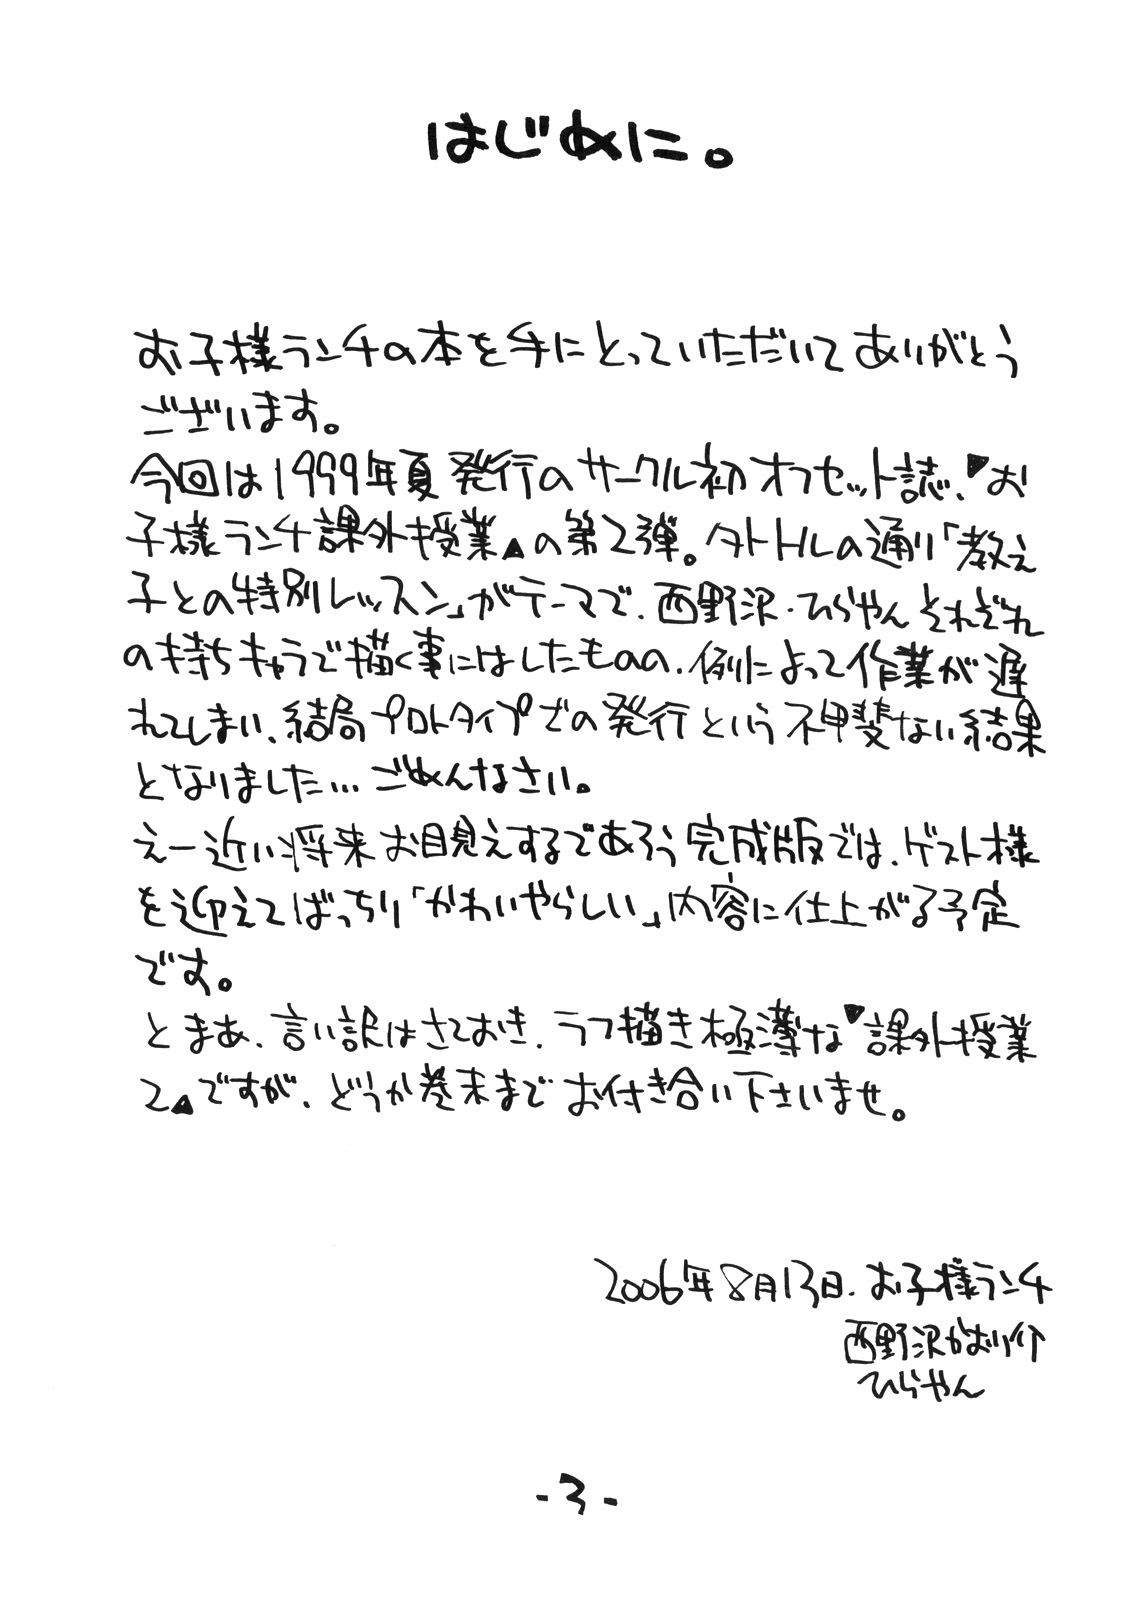 はじめに。
お子様ランチの本を手にとっていただいてありがとう
ございます。
今回は1999年夏発行のサークル初オフセット誌、『お
子様ランチ課外授業』の第2弾。タトトルの通り「教え
子との特別レッスン」がテーマで、西野沢・ひらやんそれぞれ
の持ちキャラで描く事にはしたものの、例によって作業が遅
れてしまい、結局プロトタイプでの発行という不甲斐ない結果
となりました…ごめんなさい。
えー近い将来お目見えするであろう完成版では、ゲスト様
を迎えてばっちり「かわいやらしい」内容に仕上がる予定
です。
とまあ、言い訳はさておき、ラフ描き極薄な『課外授業
2』ですが、どうか巻末までお付き合い下さいませ。
2006年8月13日、お子様ランチ
西野沢かおり介
ひらやん
-3-